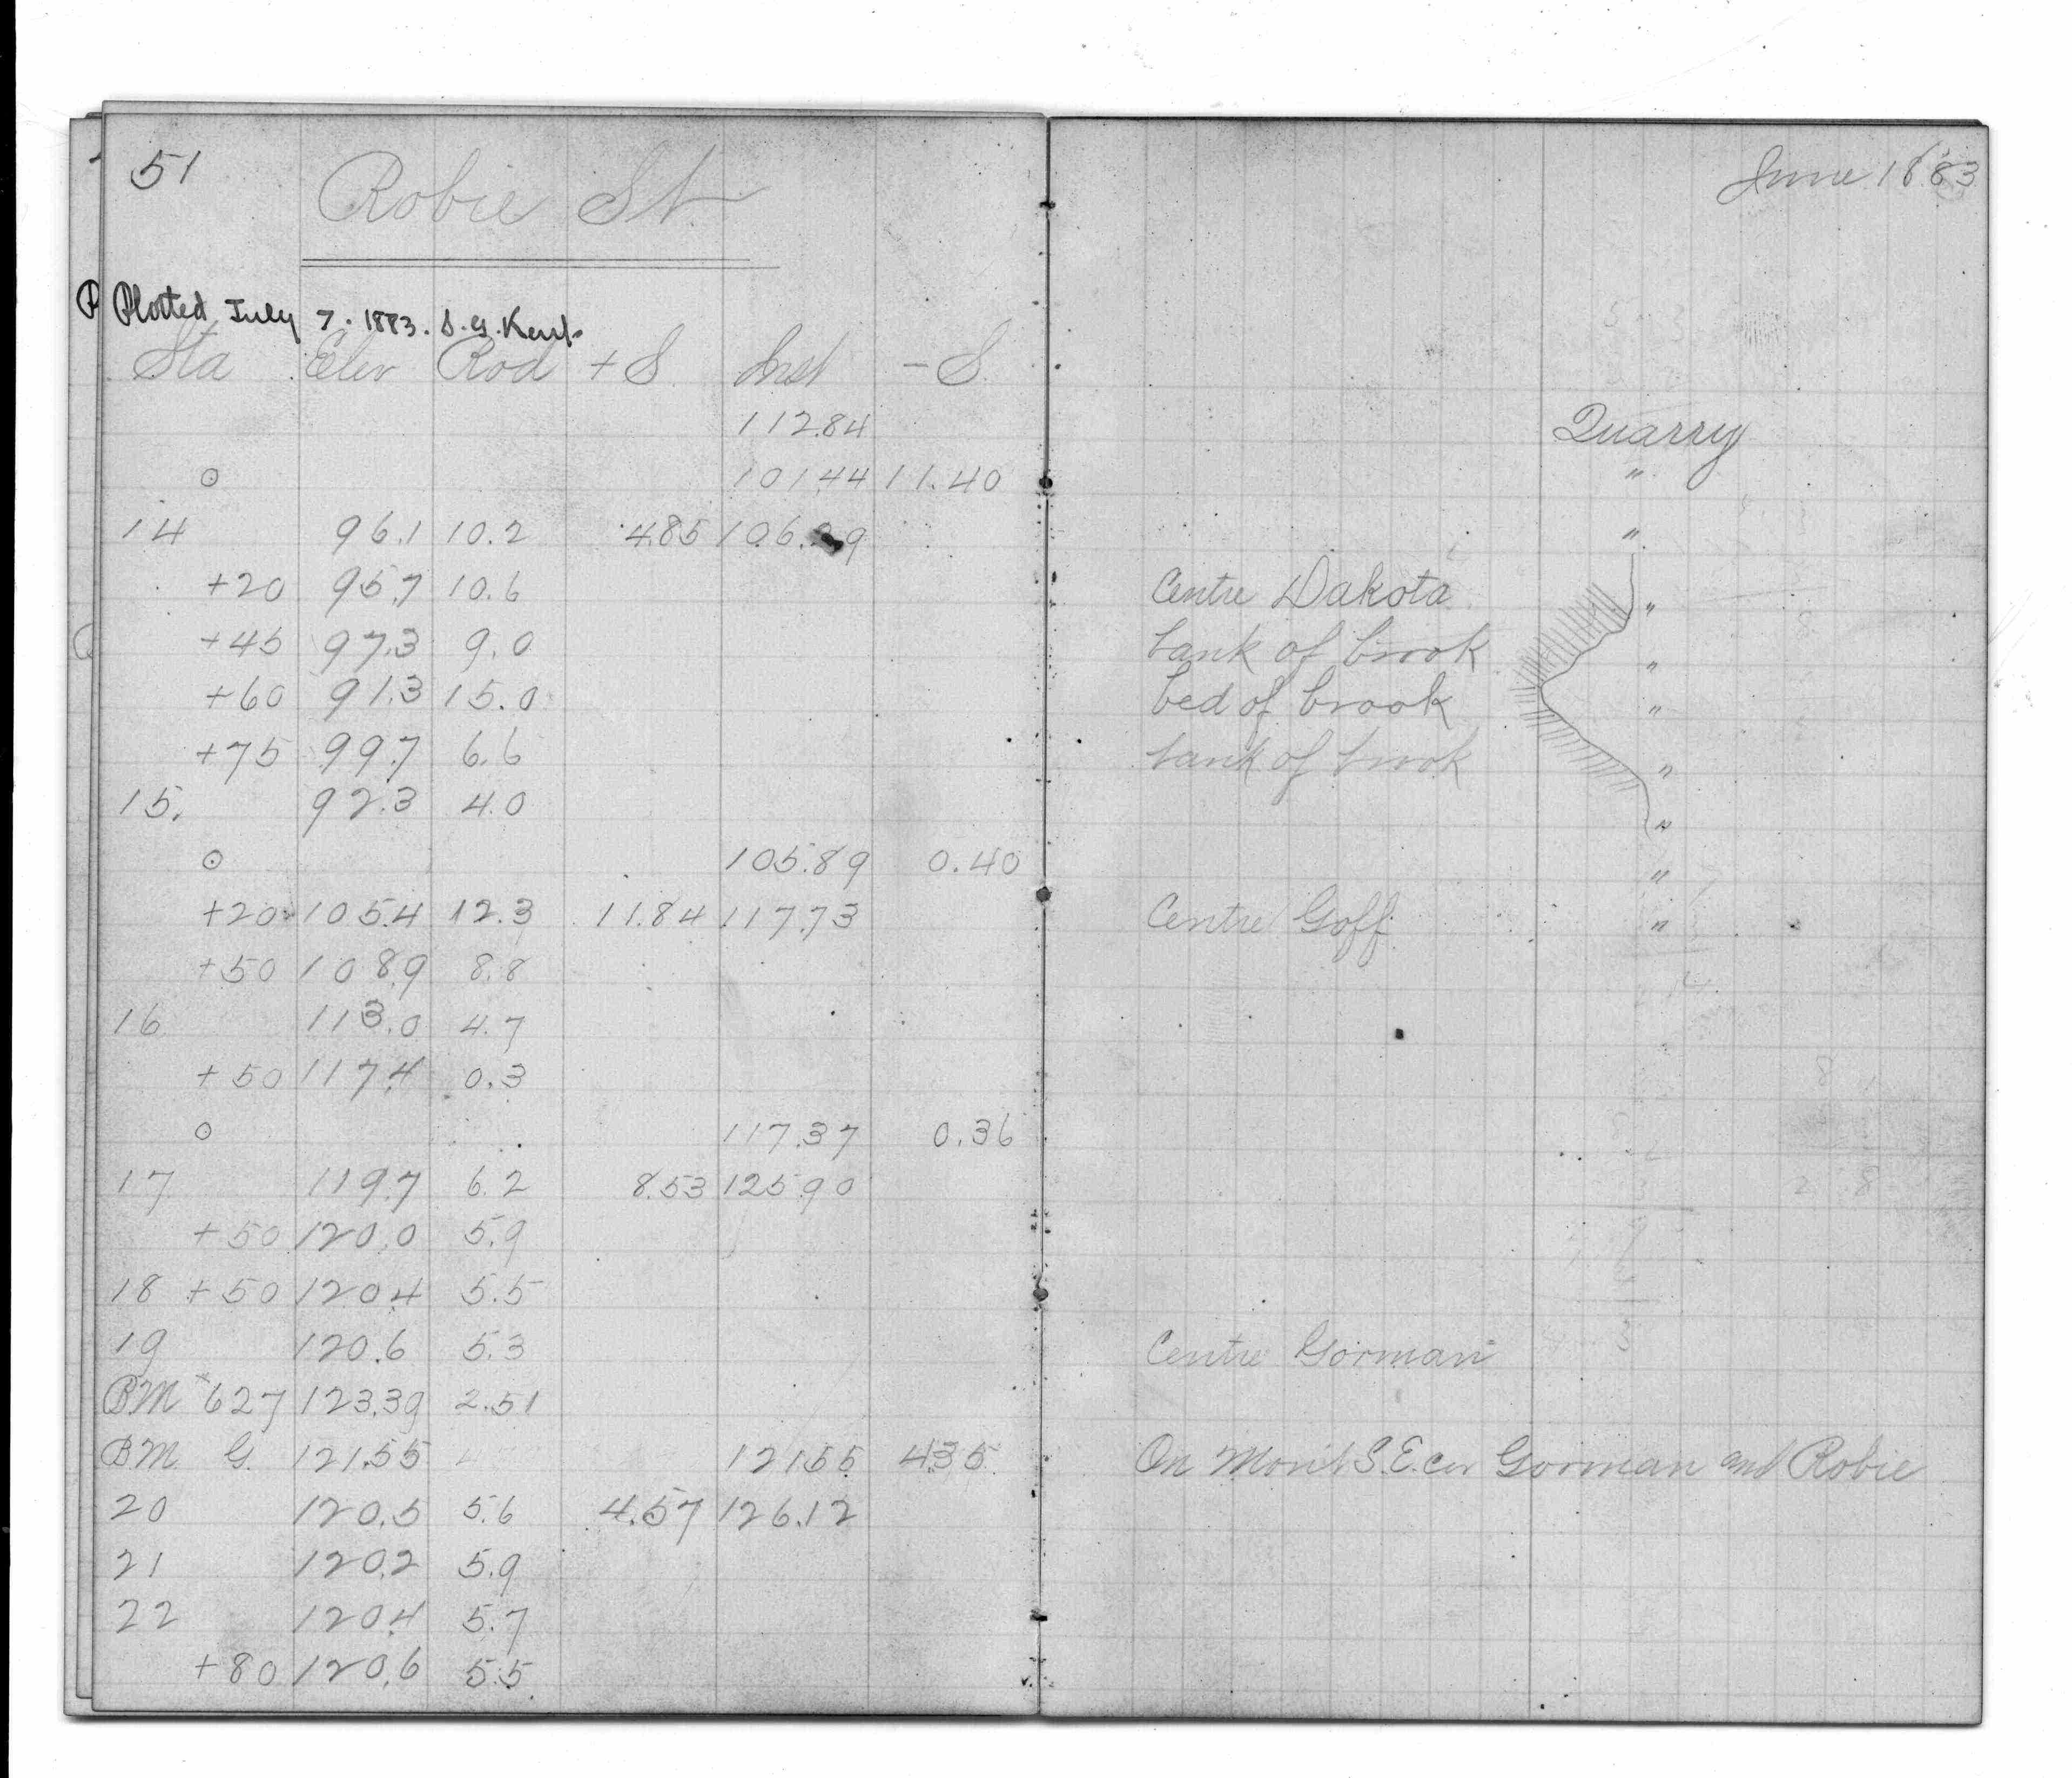 51
Robie St
June 1883
Plotted July 7. 1883. S. G. Kent.
Sta Elev Rod + S Inst - S.
112.84 Quarry
⊙ 101.44 11.40 "
14 96.1 10.2 4.85 106.29 "
+20 95.7 10.6 Centre Dakota "
+45 97.3 9.0 bank of brook "
+60 91.3 15.0 bed of brook "
+75 99.7 6.6 bank of brook "
15. 92.3 4.0 "
⊙ 105.89 0.40 "
+20 105.4 12.3 11.84 117.73 Centre Goff "
+50 108.9 8.8
16 113.0 4.7
+50 117.4 0.3
⊙ 117.37 0.36
17 119.7 6.2 8.53 125.90
+50 120.0 5.9
18 +50 120.4 5.5
19 120.6 5.3 Centre Gorman
BM 627 123.39 2.51
BM G. 121.55 121.55 4.35 On Mon't S.E. cor Gorman and Robie
20 120.5 5.6 4.57 126.12
21 120.2 5.9
22 120.4 5.7
+80 120.6 5.5